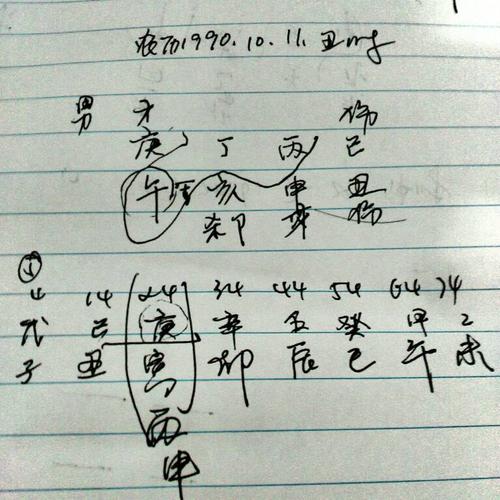 农历1990.10.11.丑时
男 才 伤
庚 丁 丙 己
午 亥 申 丑
杀卩 伤
⑤
4 14 24 34 44 54 64 74
戊 己 庚 辛 壬 癸 甲 乙
子 丑 寅 卯 辰 巳 午 未
丙
申